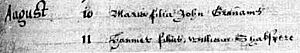 August 10 Maria filia John Grahams
11 Hanner filius William Shakspere